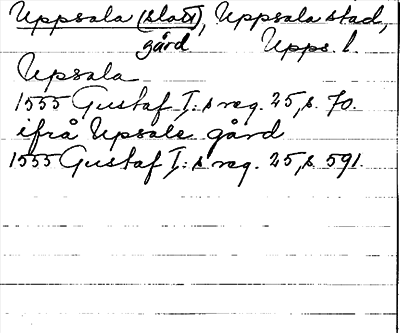 Uppsala (slott), Uppsala stad,
gård Upps. l.
Upsala
1555 Gustaf I:s reg. 25, s. 70.
ifrå Upsale gård
1555 Gustaf I:s reg. 25, s. 591.